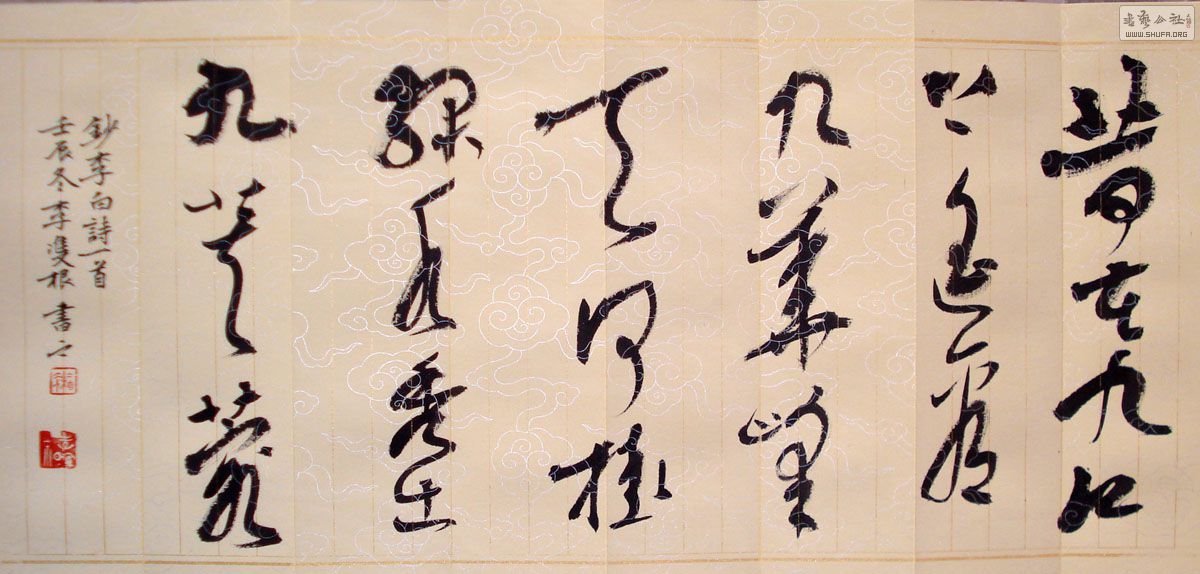 昔在九江
上遙望
九華峯
天河掛
綠水秀出
九芙蓉
鈔李白詩一首
壬辰冬李雙根書之
書藝公社
WWW.SHUFA.ORG